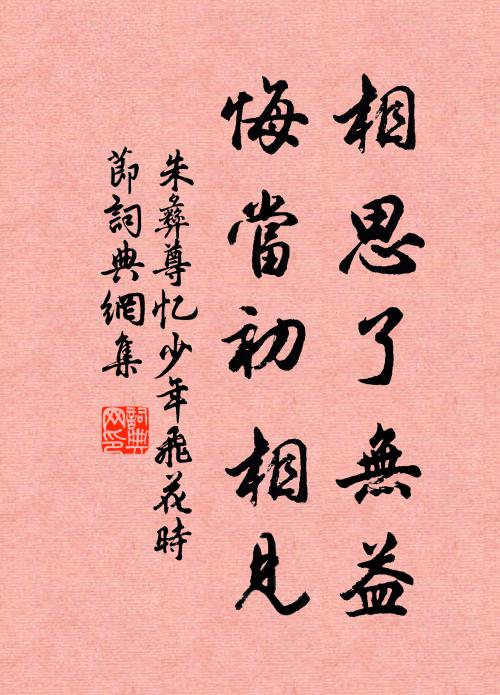 相思了無益
悔當初相見
朱彝尊忆少年飛花時
節詞典網集
詞典網印